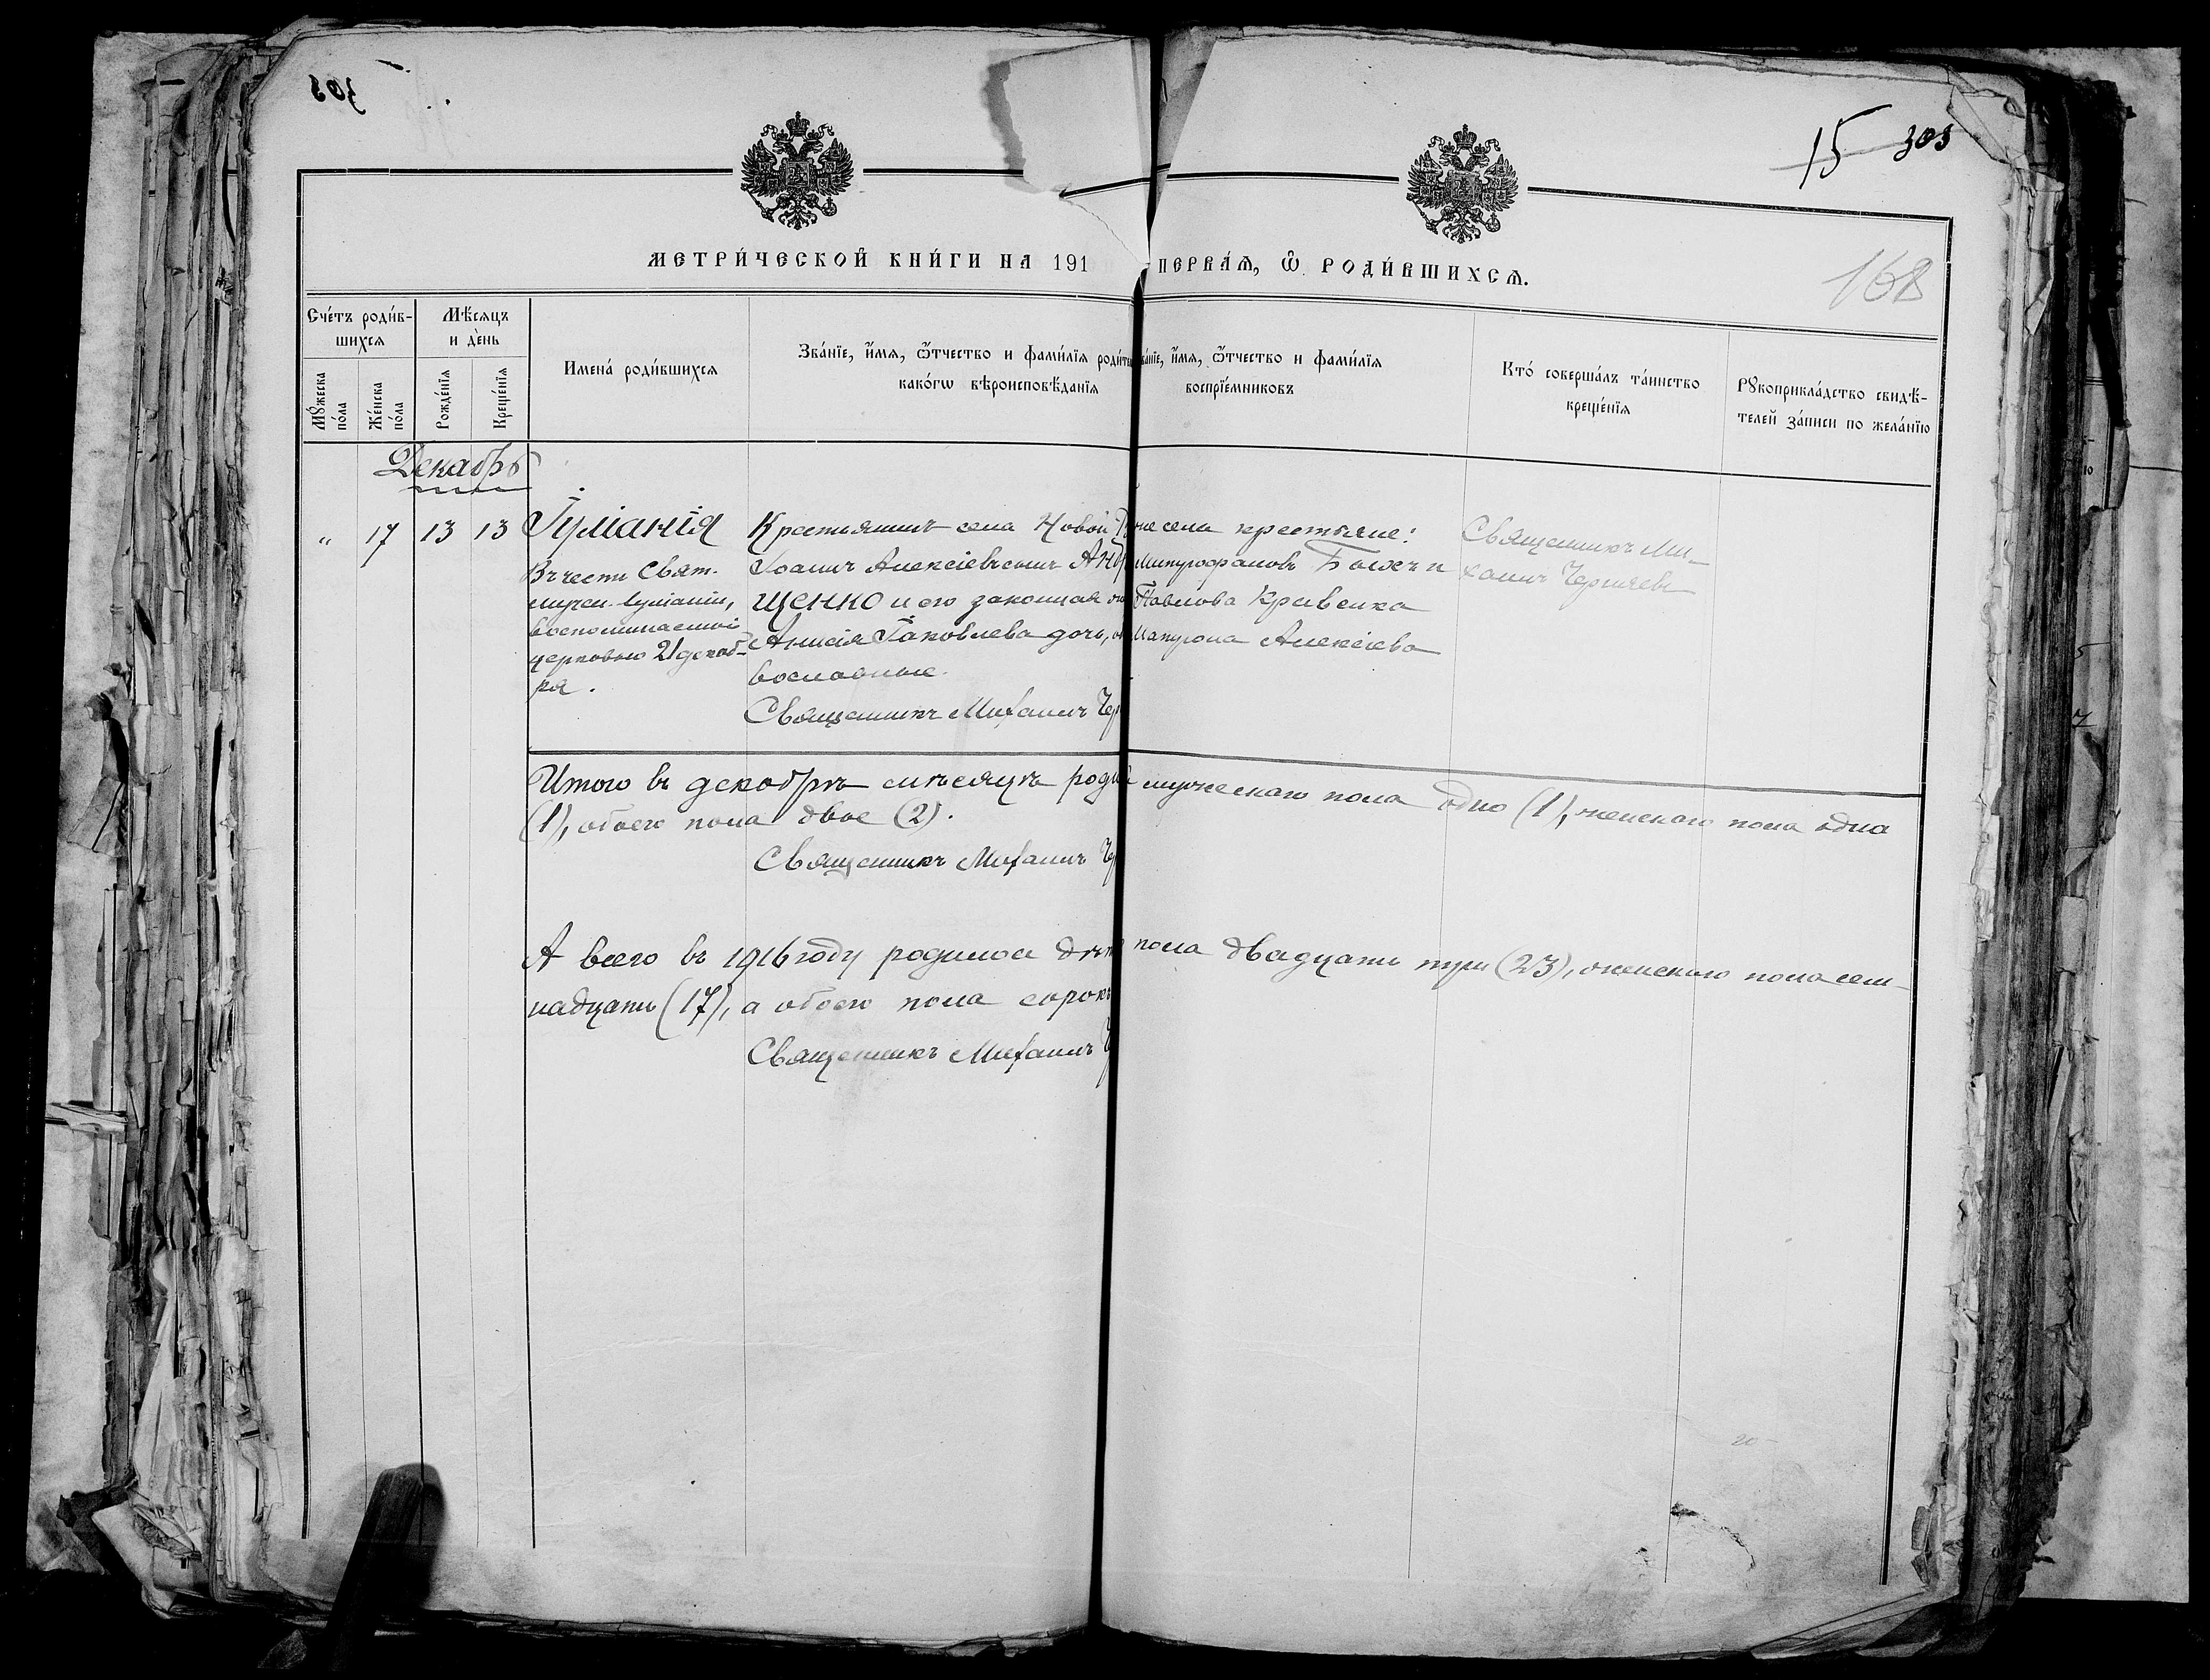 303
15 303
168
МЕТРИ́ЧЕСКОЙ КНИ́ГИ НА 191
ПЕРВА́Ѧ, Ѽ РОДИ́ВШИХСѦ.
Сче́тъ роди́в-
шихсѧ
Мѣ́сѧцъ
и де́нь
Мꙋ́жеска
по́ла
Же́нска
по́ла
Рожде́нїѧ
Креще́нїѧ
Имена̀ роди́вшихсѧ
Зва́нїе, и́мѧ, ѻ́тчество и фами́лїѧ
како́гѡ вѣроисповѣ́данїѧ
и́мѧ, ѻ́тчество и фами́лїѧ
воспрїе́мниковъ
Кто́ соверша́лъ та́инство
креще́нїѧ
Рꙋкоприкла́дство свидѣ́-
телей за́писи по жела́нїю
Декабрь
" 17 13 13
Іуліанія
Въ честь Свят.
мучен. Іуліаніи,
воспоминаемой
церковью 21 декаб-
ря.
Крестьянинъ села Новой
Іоаннъ Алексіевъ сынъ
щенко и его законная
Анисія Іаковлева дочь,
вославные.
Священникъ Михаилъ
села крестьяне:
Митрофановъ и
Павлова Кравенка
Матрона Алексіева
Священникъ Ми-
хаилъ Черняевъ
Итого въ декабрѣ мѣсяцѣ
мужескаго пола одно (1), женскаго пола одна
(1), обоего пола двое (2).
Священникъ Михаилъ
А всего въ 1916 году родилось
пола двадцать три (23), женскаго пола сем-
надцать (17), а обоего пола сорокъ
Священникъ Михаилъ